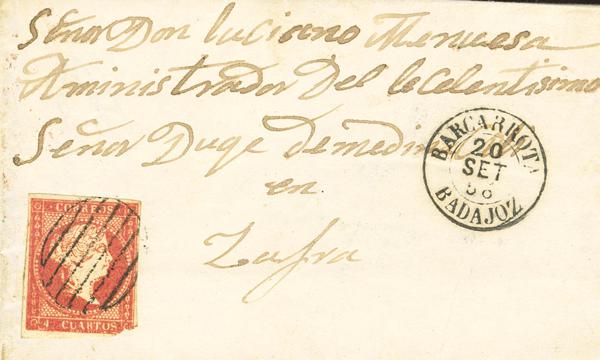 Señor Don luciano Menuesa
Aministrador Del lecelentisimo
Señor Duqe demedina
en
Zafra
BARCARROTA
20
SET
58
BADAJOZ
CORREOS
4 CUARTOS